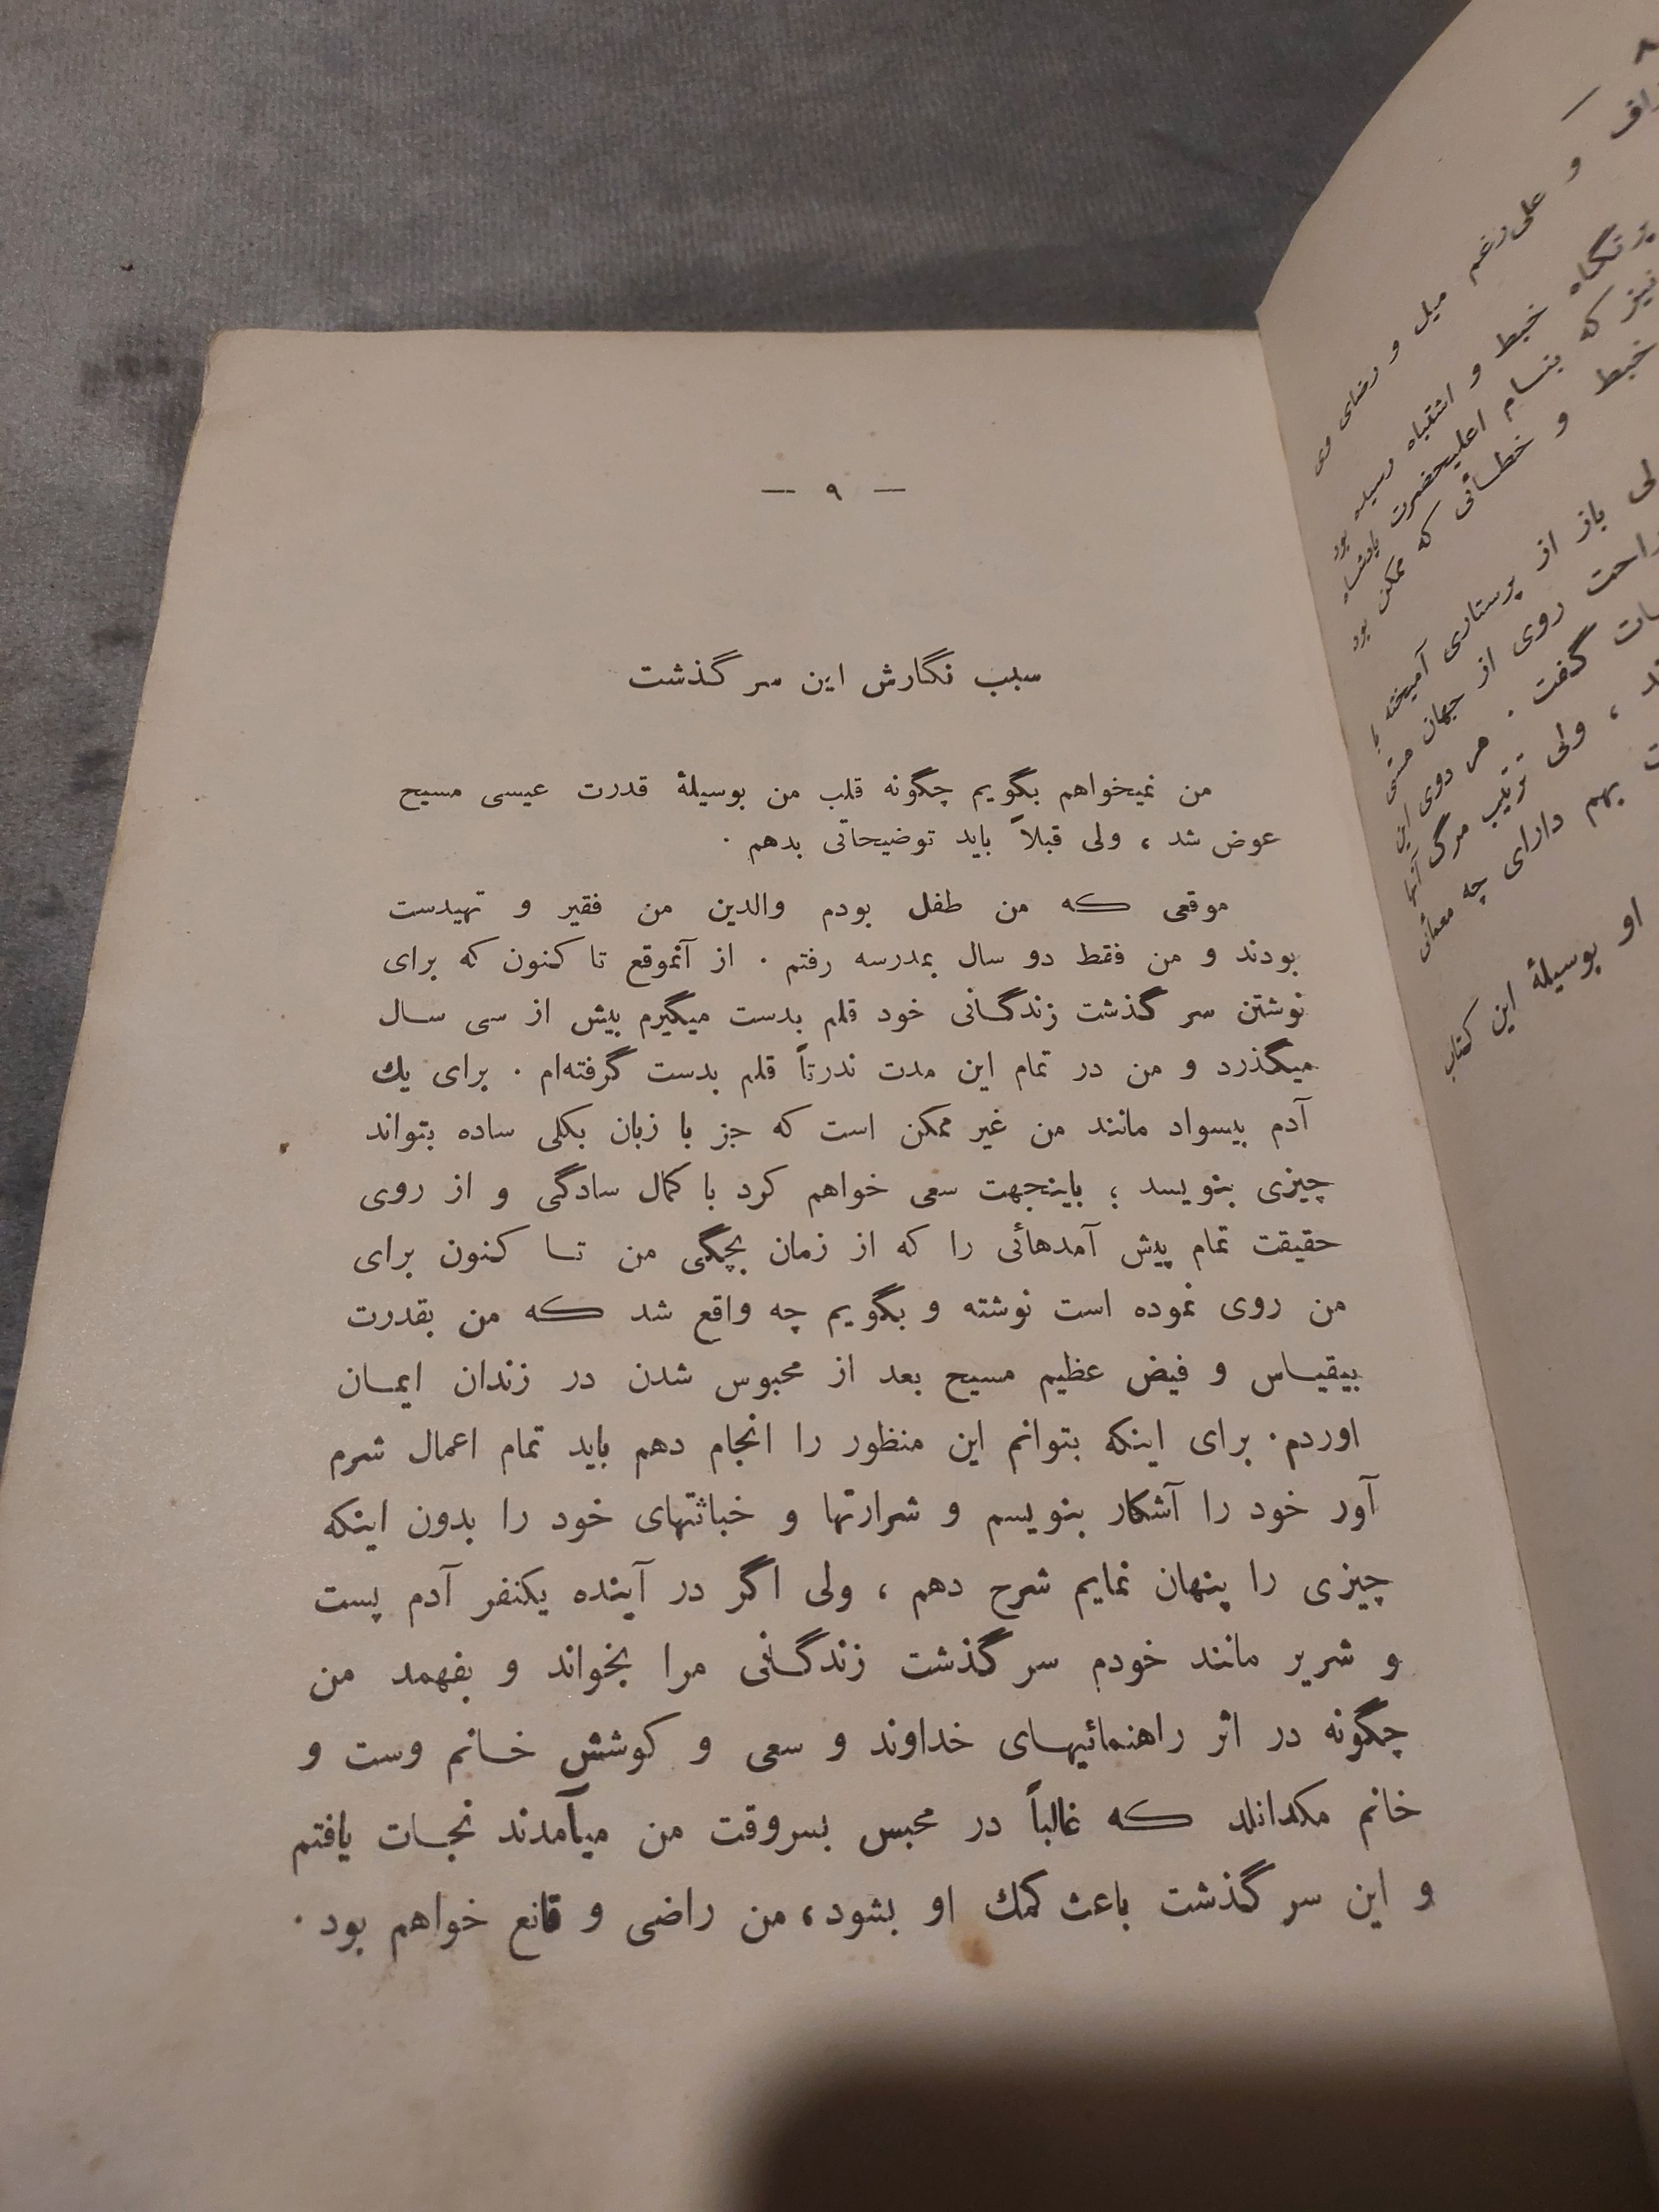 — ۹ —
سبب نگارش این سر گذشت
من نمیخواهم بگویم چگونه قلب من بوسیلهٔ قدرت عیسی مسیح
عوض شد ، ولی قبلاً باید توضیحاتی بدهم .
موقعی که من طفل بودم والدین من فقیر و تهیدست
بودند و من فقط دو سال بمدرسه رفتم . از آنموقع تا کنون که برای
نوشتن سر گذشت زندگانی خود قلم بدست میگیرم بیش از سی سال
میگذرد و من در تمام این مدت ندرتاً قلم بدست گرفته‌ام . برای یك
آدم بیسواد مانند من غیر ممکن است که جز با زبان بکلی ساده بتواند
چیزی بنویسد ؛ باینجهت سعی خواهم کرد با کمال سادگی و از روی
حقیقت تمام پیش آمدهائی را که از زمان بچگی من تا کنون برای
من روی نموده است نوشته و بگویم چه واقع شد که من بقدرت
بیقیاس و فیض عظیم مسیح بعد از محبوس شدن در زندان ایمان
اوردم . برای اینکه بتوانم این منظور را انجام دهم باید تمام اعمال شرم
آور خود را آشکار بنویسم و شرارتها و خباثتهای خود را بدون اینکه
چیزی را پنهان نمایم شرح دهم ، ولی اگر در آینده یکنفر آدم پست
و شریر مانند خودم سر گذشت زندگانی مرا بخواند و بفهمد من
چگونه در اثر راهنمائیهای خداوند و سعی و کوشش خانم وست و
خانم مکدانلد که غالباً در محبس بسروقت من میآمدند نجات یافتم
و این سر گذشت باعث کمك او بشود، من راضی و قانع خواهم بود .
۸
و علی‌رغم میل و رضای وی
خبط و اشتباه رسیده بود
نیز که بنام اعلیحضرت پادشاه
خبط و خطائی که ممکن بود
باز از پرستاری آمیخته با
روی از جهان هستی
گفت . هر دوی این
، ولی ترتیب مرگ آنها
بهم دارای چه معنائی
او بوسیلهٔ این کتاب